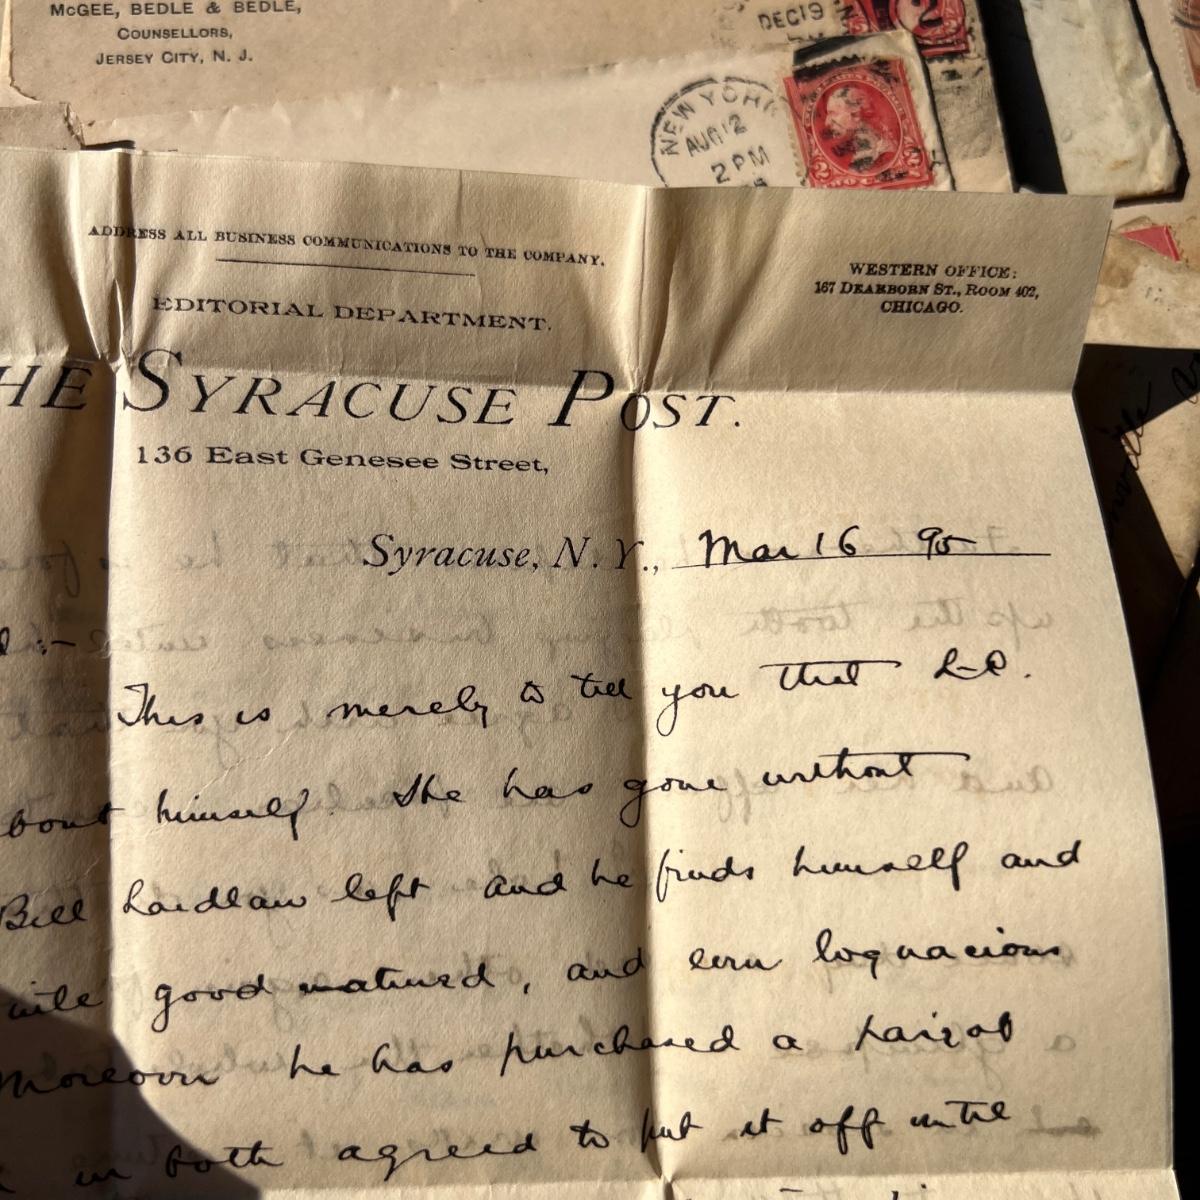 McGEE, BEDLE & BEDLE,
COUNSELLORS,
JERSEY CITY, N. J.
DEC 19
2
NEW YORK
AUG 12
2 PM
2 2
ADDRESS ALL BUSINESS COMMUNICATIONS TO THE COMPANY.
EDITORIAL DEPARTMENT.
WESTERN OFFICE:
167 DEARBORN ST., ROOM 402,
CHICAGO.
HE SYRACUSE POST.
136 East Genesee Street,
Syracuse, N. Y., Mar 16 95
This is merely to tell you that
bout himself. She has gone without
Bill Laidlaw left and he finds himself and
uite good natured, and even loquacious
Moreover he has purchased a pair of
in both agreed to put it off until